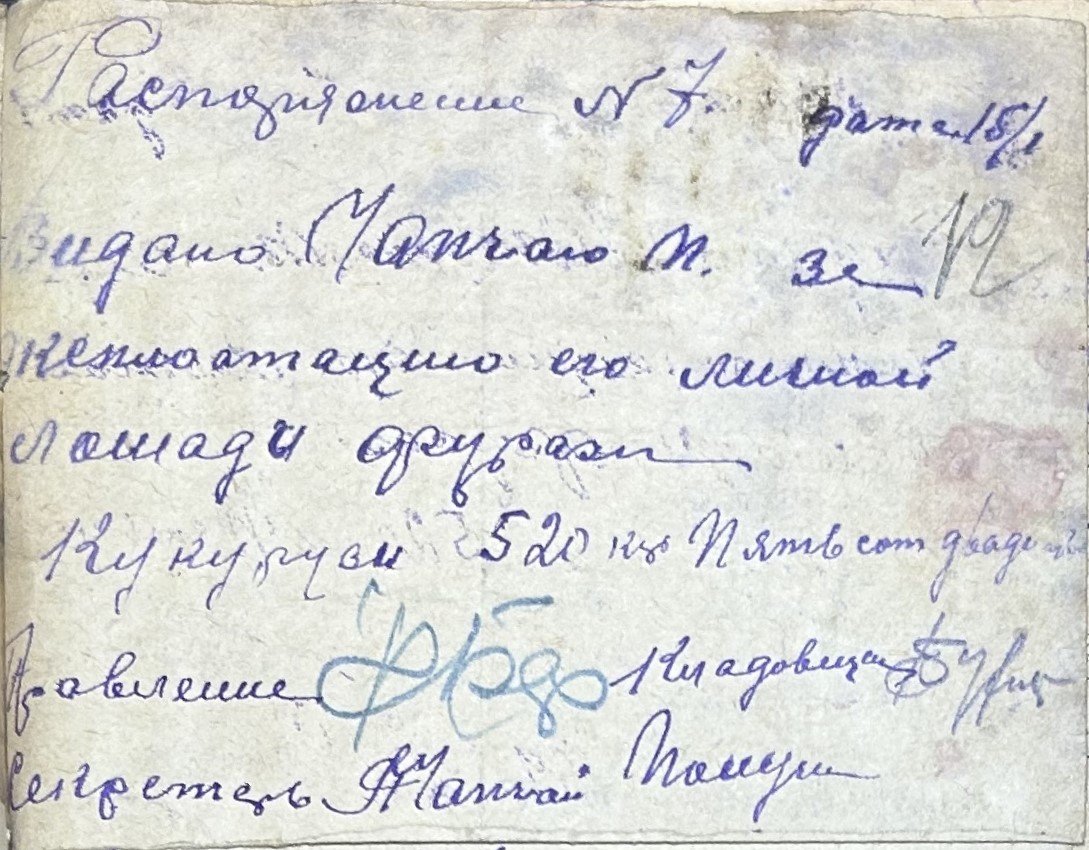 Распоряжение N 7. дата 15/1
Видано Чапчаю П. за 12
эксплоатацию его личной
лошади фуража
Кукурузи 520 кг Пятьсот двадцать
Правление Кладовщик
Секретарь Чапчай